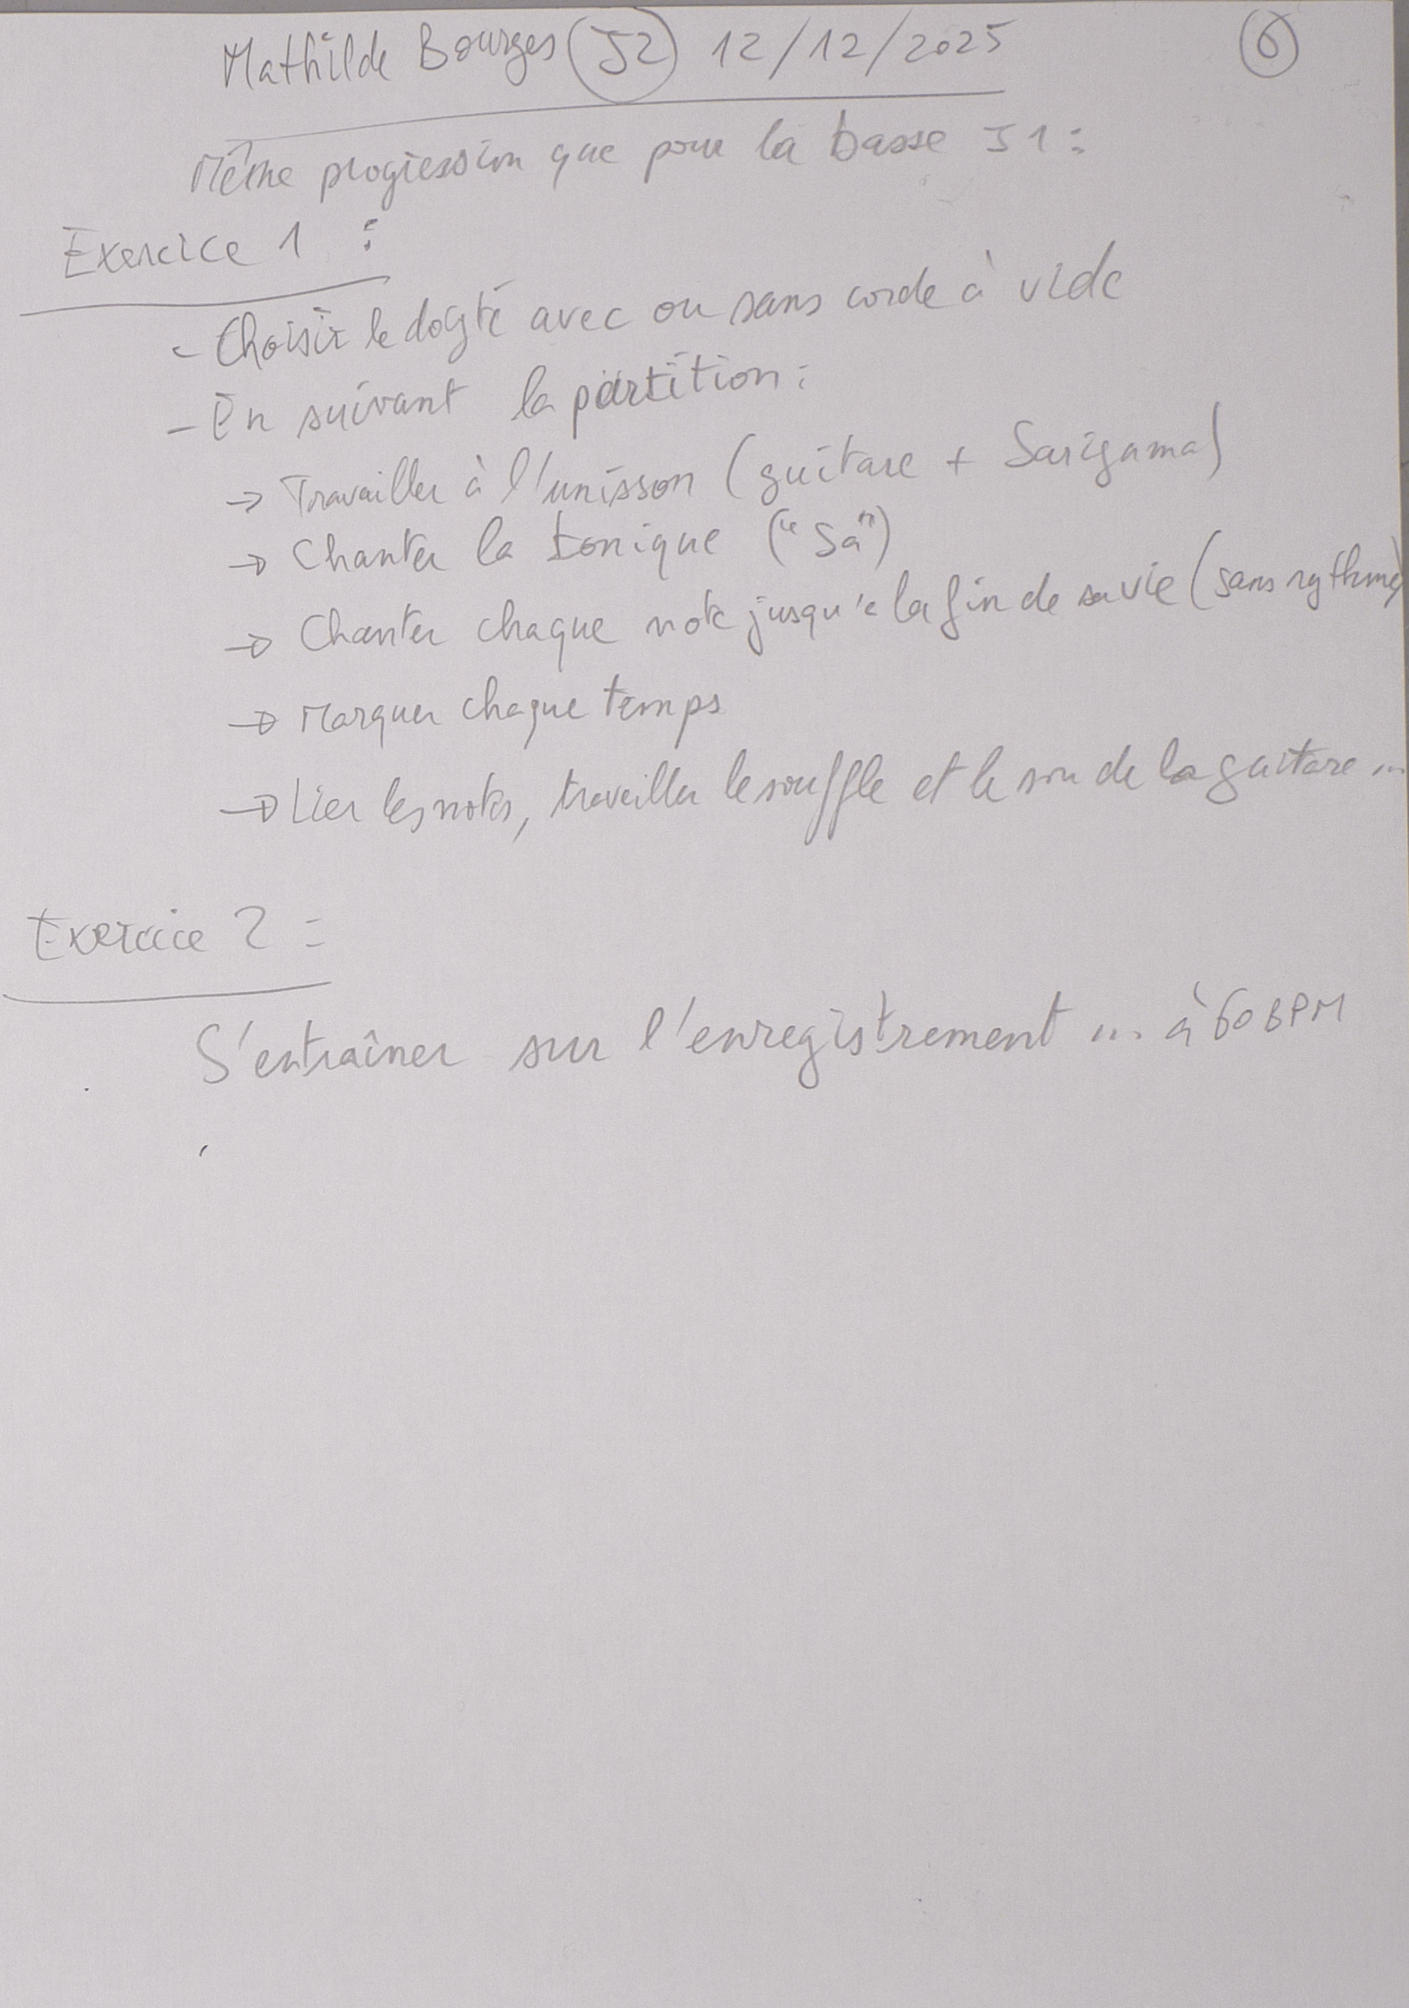 Mathilde Bourges J2 12/12/2025 6
Même progression que pour la basse J1 :
Exercice 1 :
- Choisir le doigté avec ou sans corde à vide
- En suivant la partition :
→ Travailler à l'unisson (guitare + Sarigama)
→ Chanter la tonique ("Sa")
→ Chanter chaque note jusqu'à la fin de sa vie (sans rythme)
→ Marquer chaque temps
→ Lier les notes, travailler le souffle et le son de la guitare ...
Exercice 2 :
S'entraîner sur l'enregistrement ... à 60 BPM